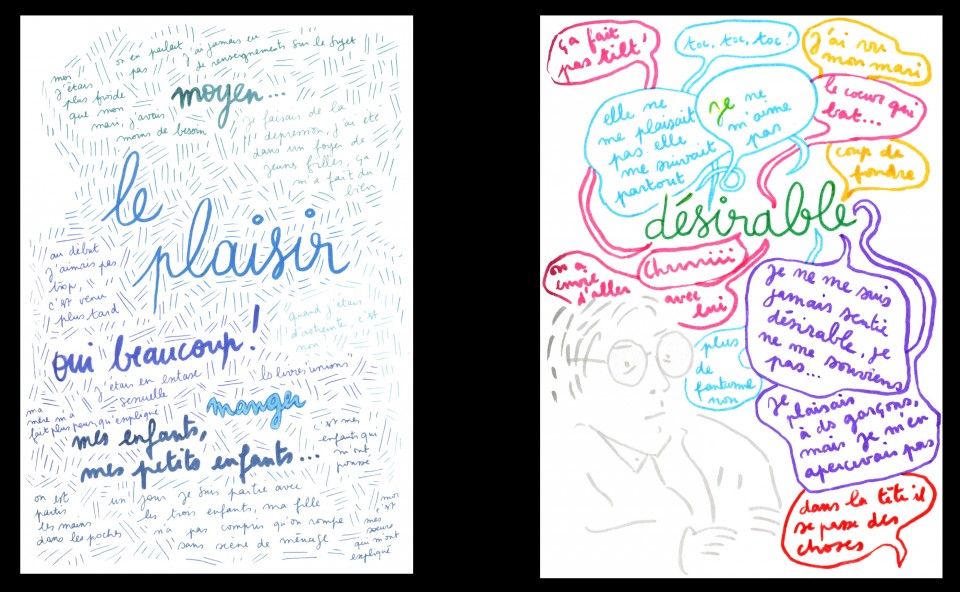 on en parlait
pas
j'ai jamais eu
de renseignements sur le sujet
moi
j'étais
plus froide
que mon
mari, j'avais
moins de besoin
moyen...
je faisais de la
dépression, j'ai été
dans un foyer de
jeune filles, ça
m'a fait du
bien
le
plaisir
au début
j'aimais pas
trop,
c'est venu
plus tard
quand étais
d'astreinte, c'est
non
oui beaucoup!
j'étais en extase
sensuelle
"la livres unions"
ma
mère m'a
fait plus peur, qu'expliqué
manger
mes enfants,
mes petits enfants...
c'est mes
enfants qui
m'ont
poussé
on est
parties
les mains
dans les poches
un jour je suis partie avec
les trois enfants, ma fille
n'a pas compris qu'on rompe
sans scène de ménage
moi
c'est
mes
soeurs
qui m'ont
expliqué
ça fait
pas tilt!
toc, toc, toc!
j'ai vu
mon mari
elle ne
me plaisait
pas elle
me suivait
partout
je ne
m'aime
pas
le coeur qui
bat...
coup de
foudre
désirable
on a
envie
d'aller
Chuuiiii
avec
lui
plus
de
fantasme
non
je ne me suis
jamais sentie
désirable, je
ne me souviens
pas...
je
plaisais
à ds garçons,
mais je m'en
apercevais pas
dans la tête il
se passe des
choses